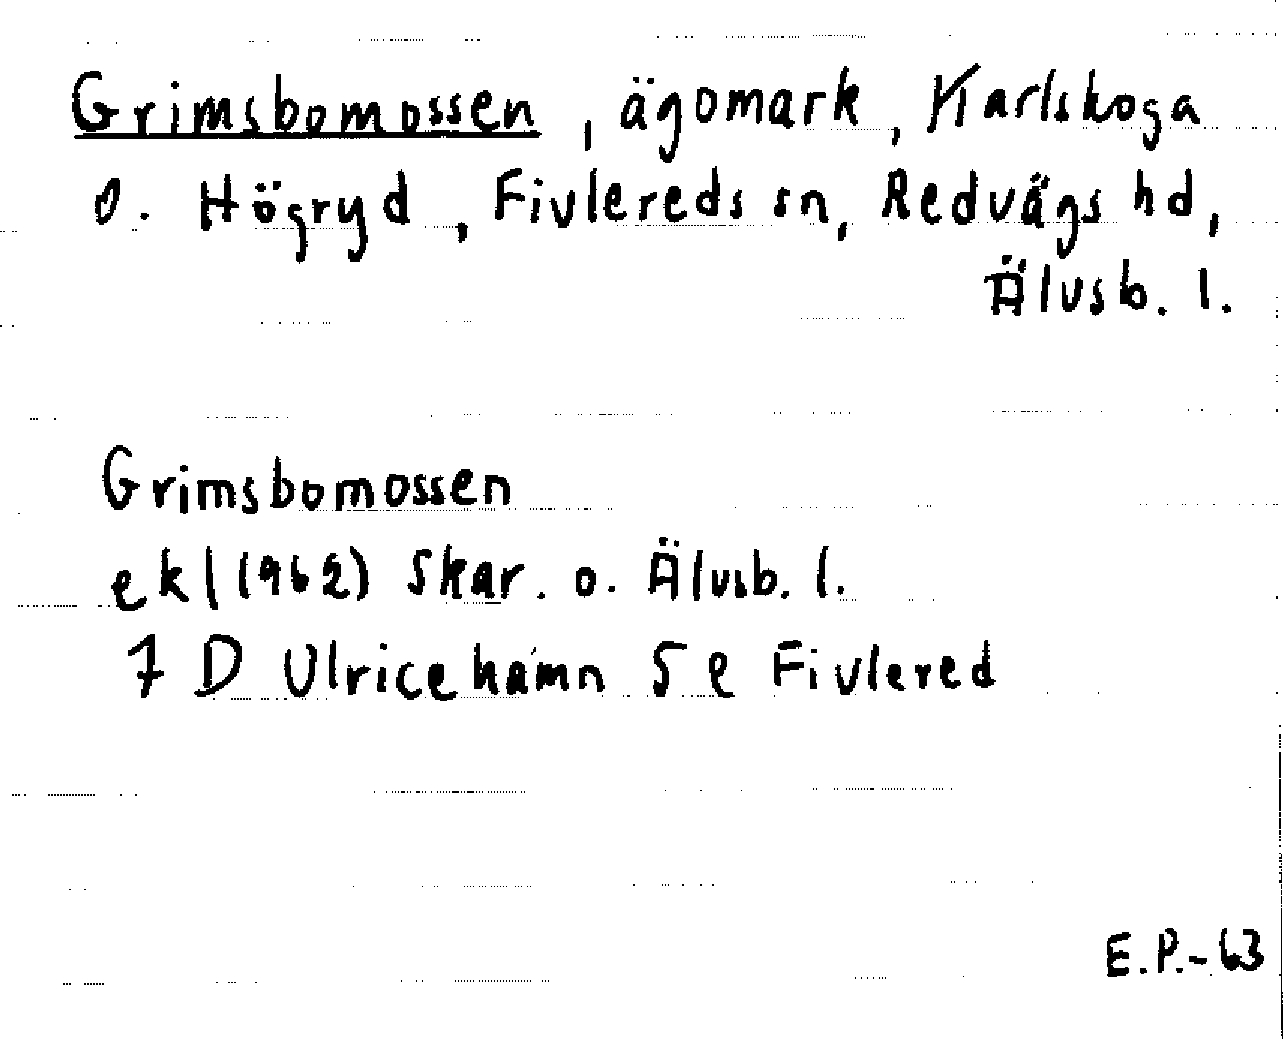 Grimsbomossen, ägomark, Karlskoga
o. Högryd, Fivlereds sn, Redvägs hd,
Älvsb. l.
Grimsbomossen
ekl (1962) Skar. o. Älvsb. l.
7 D Ulricehamn 5 e Fivlered
E.P.-63